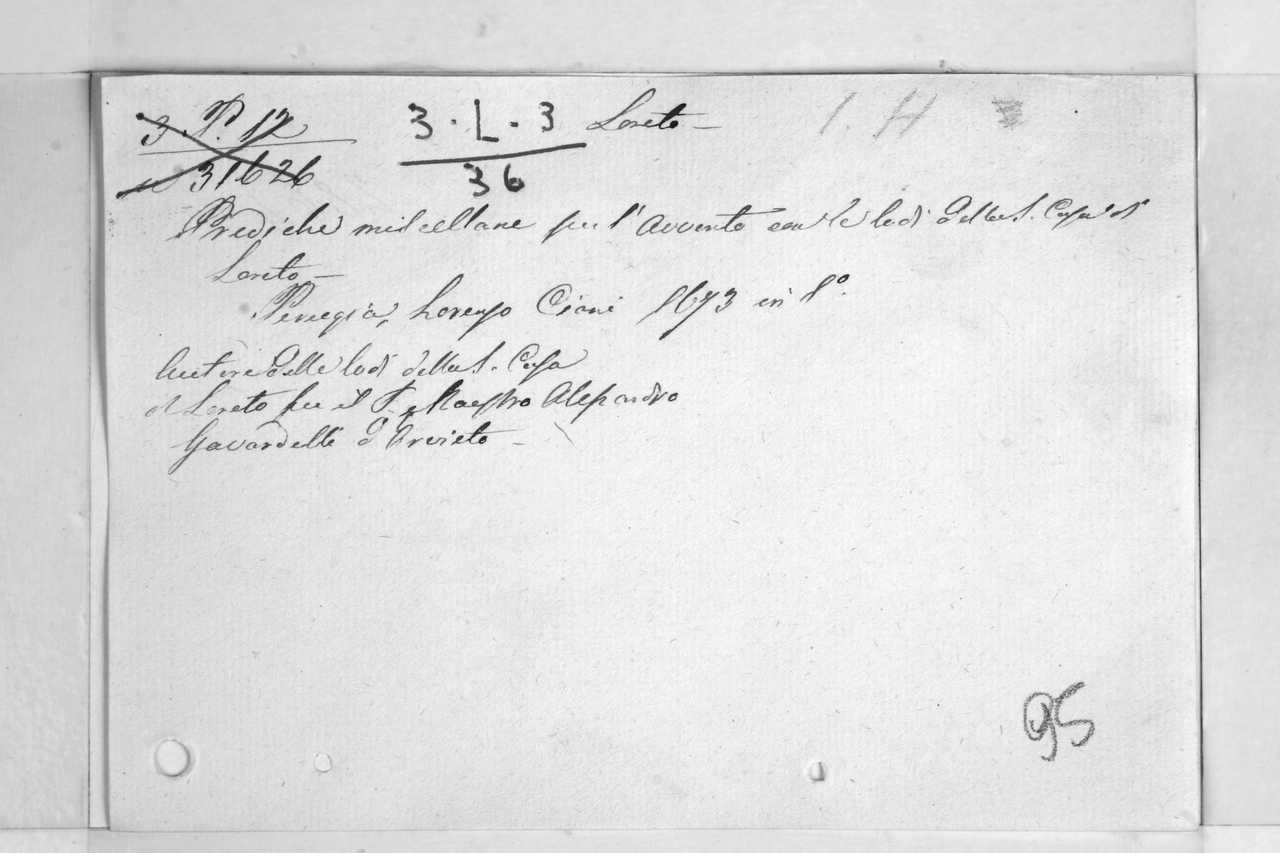 3. P. 12
31626
3 · L · 3 Loreto —
36
1. H
Prediche miscellane per l' Avvento con le lodi della S. Casa di
Loreto —
Perugia, Lorenzo Ciani 1673 in
Autore delle lodi della S. Casa
di Loreto fu il P. Maestro Alessandro
Gavardelli d' Orvieto —
95